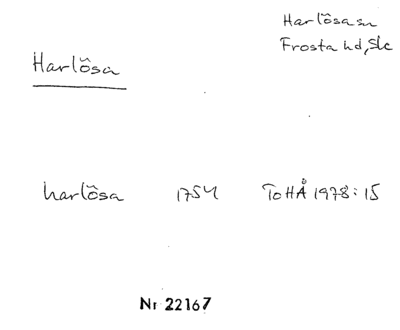 Harlösa sn
Frosta hd, Skc
Harlösa
harlösa 1754 ToHÅ 1978:15
Nr 22167